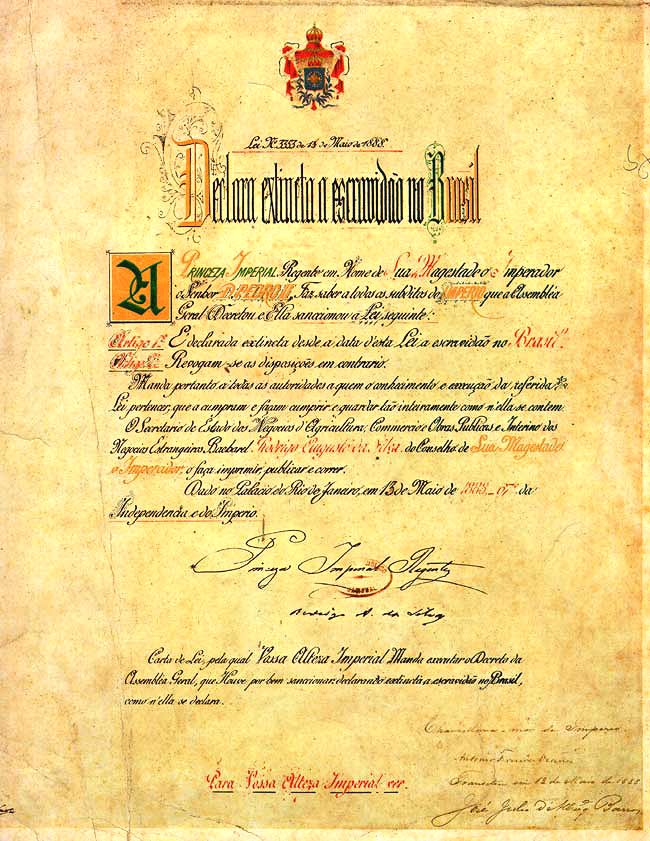 Lei Nº 3353 de 13 de Maio de 1888.
Declara extincta a escravidão no Brasil
A PRINCEZA IMPERIAL Regente em Nome de Sua Magestade o Imperador
o Senhor D. PEDRO II, Faz saber a todos os subditos do IMPERIO que a Assembléa
Geral Decretou e Ella sanccionou a Lei seguinte:
Artigo 1º É declarada extincta desde a data d'esta Lei a escravidão no Brasil.
Artigo 2º Revogam-se as disposições em contrario.
Manda portanto a todas as autoridades a quem o conhecimento e execução da referida
Lei pertencer, que a cumpram e façam cumprir e guardar tão inteiramente como n'ella se contem.
O Secretario de Estado dos Negocios d'Agricultura, Commercio e Obras Publicas e Interino dos
Negocios Estrangeiros Bacharel Rodrigo Augusto da Silva do Conselho de Sua Magestade
o Imperador, o faça imprimir, publicar e correr.
Dado no Palacio do Rio de Janeiro, em 13 de Maio de 1888 - 67º da
Independencia e do Imperio.
Princeza Imperial Regente
Rodrigo A. da Silva
Carta de Lei, pela qual Vossa Alteza Imperial Manda executar o Decreto da
Assembléa Geral, que Houve por bem sanccionar declarando extincta a escravidão no Brasil,
como n'ella se declara.
Chancellaria-mór do Imperio
Antonio Ferreira Vianna
Transitou em 13 de Maio de 1888
José Julio d'Albuqº Barros
Para Vossa Alteza Imperial ver.